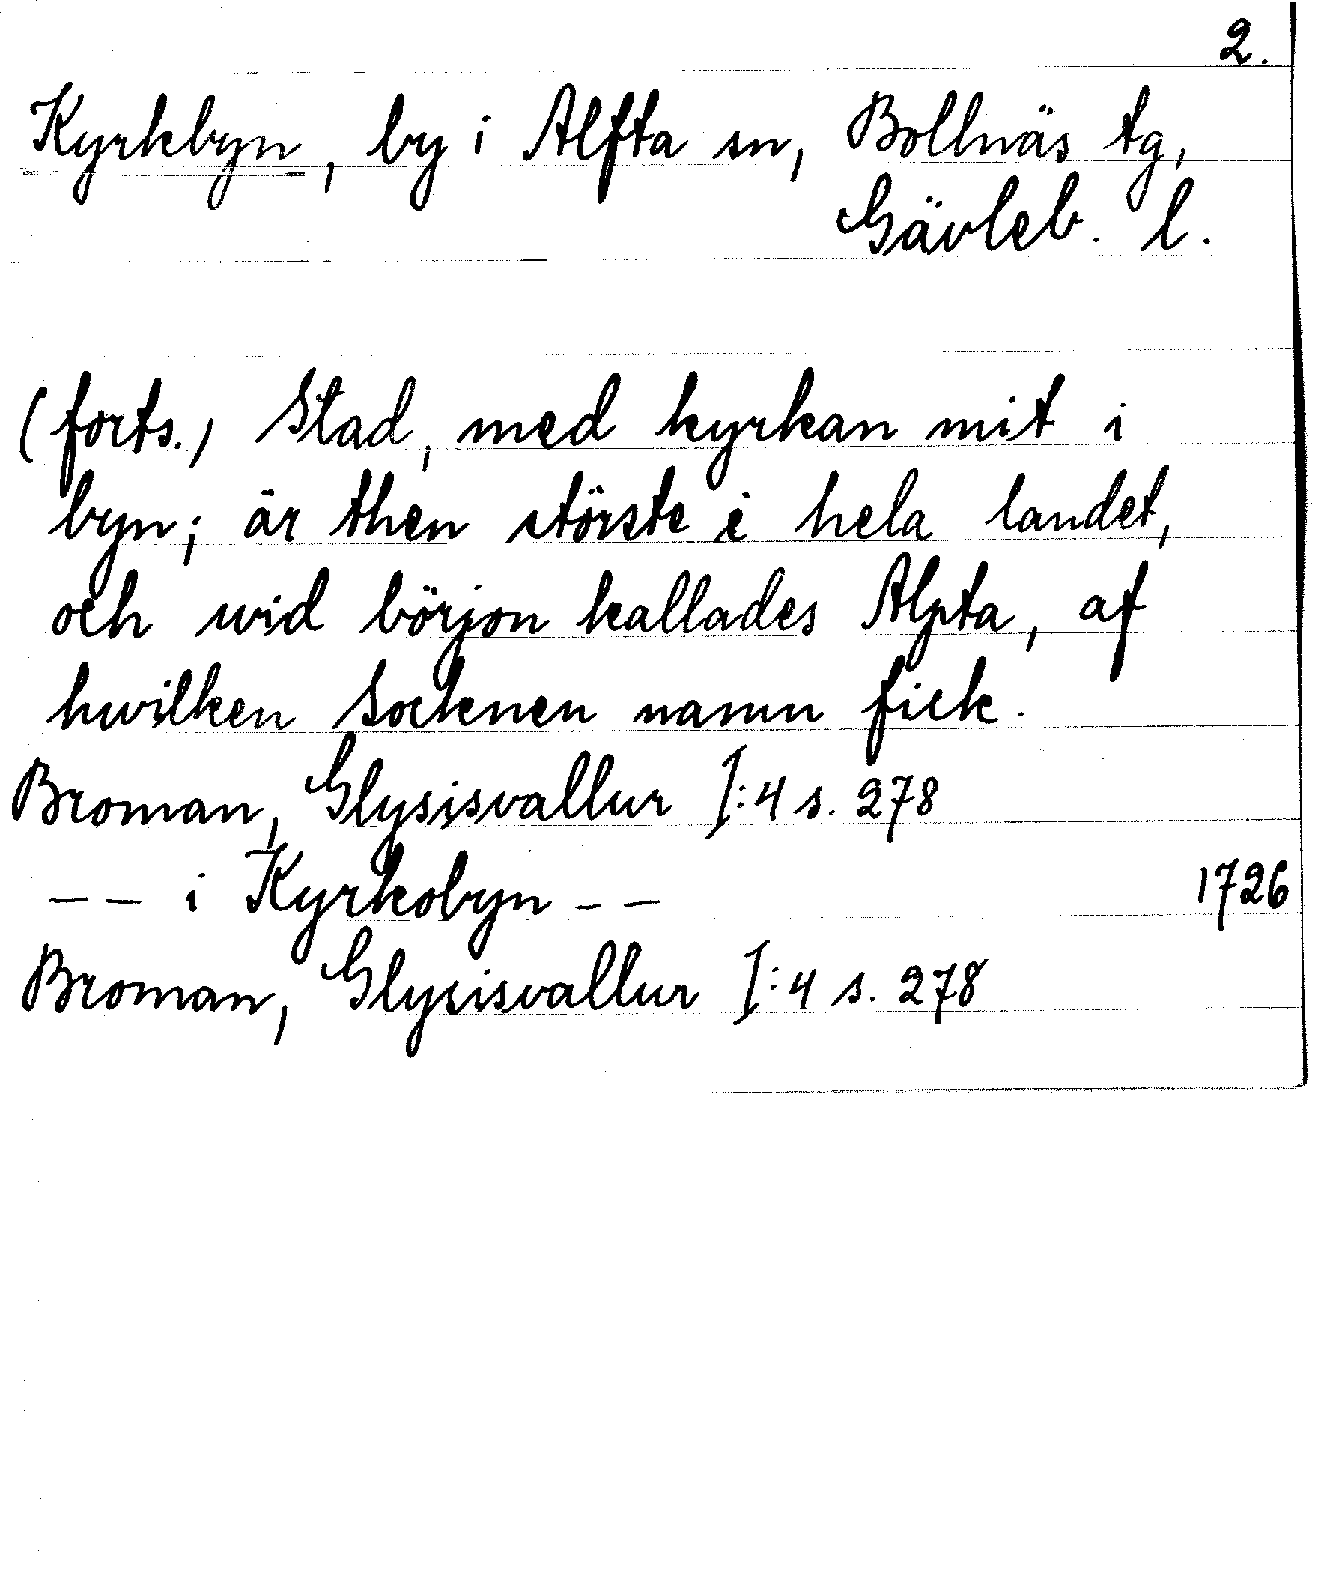 2.
Kyrkbyn, by i Alfta sn, Bollnäs tg,
Gävleb. l.
(forts.) Stad, med kyrkan mit i
byn; är then störste i hela landet,
och wid börjon kallades Alpta, af
hwilken Socknen namn fick.
Broman, Glysisvallur I:4 s. 278
-- i Kyrkobyn -- 1726
Broman, Glysisvallur I:4 s. 278